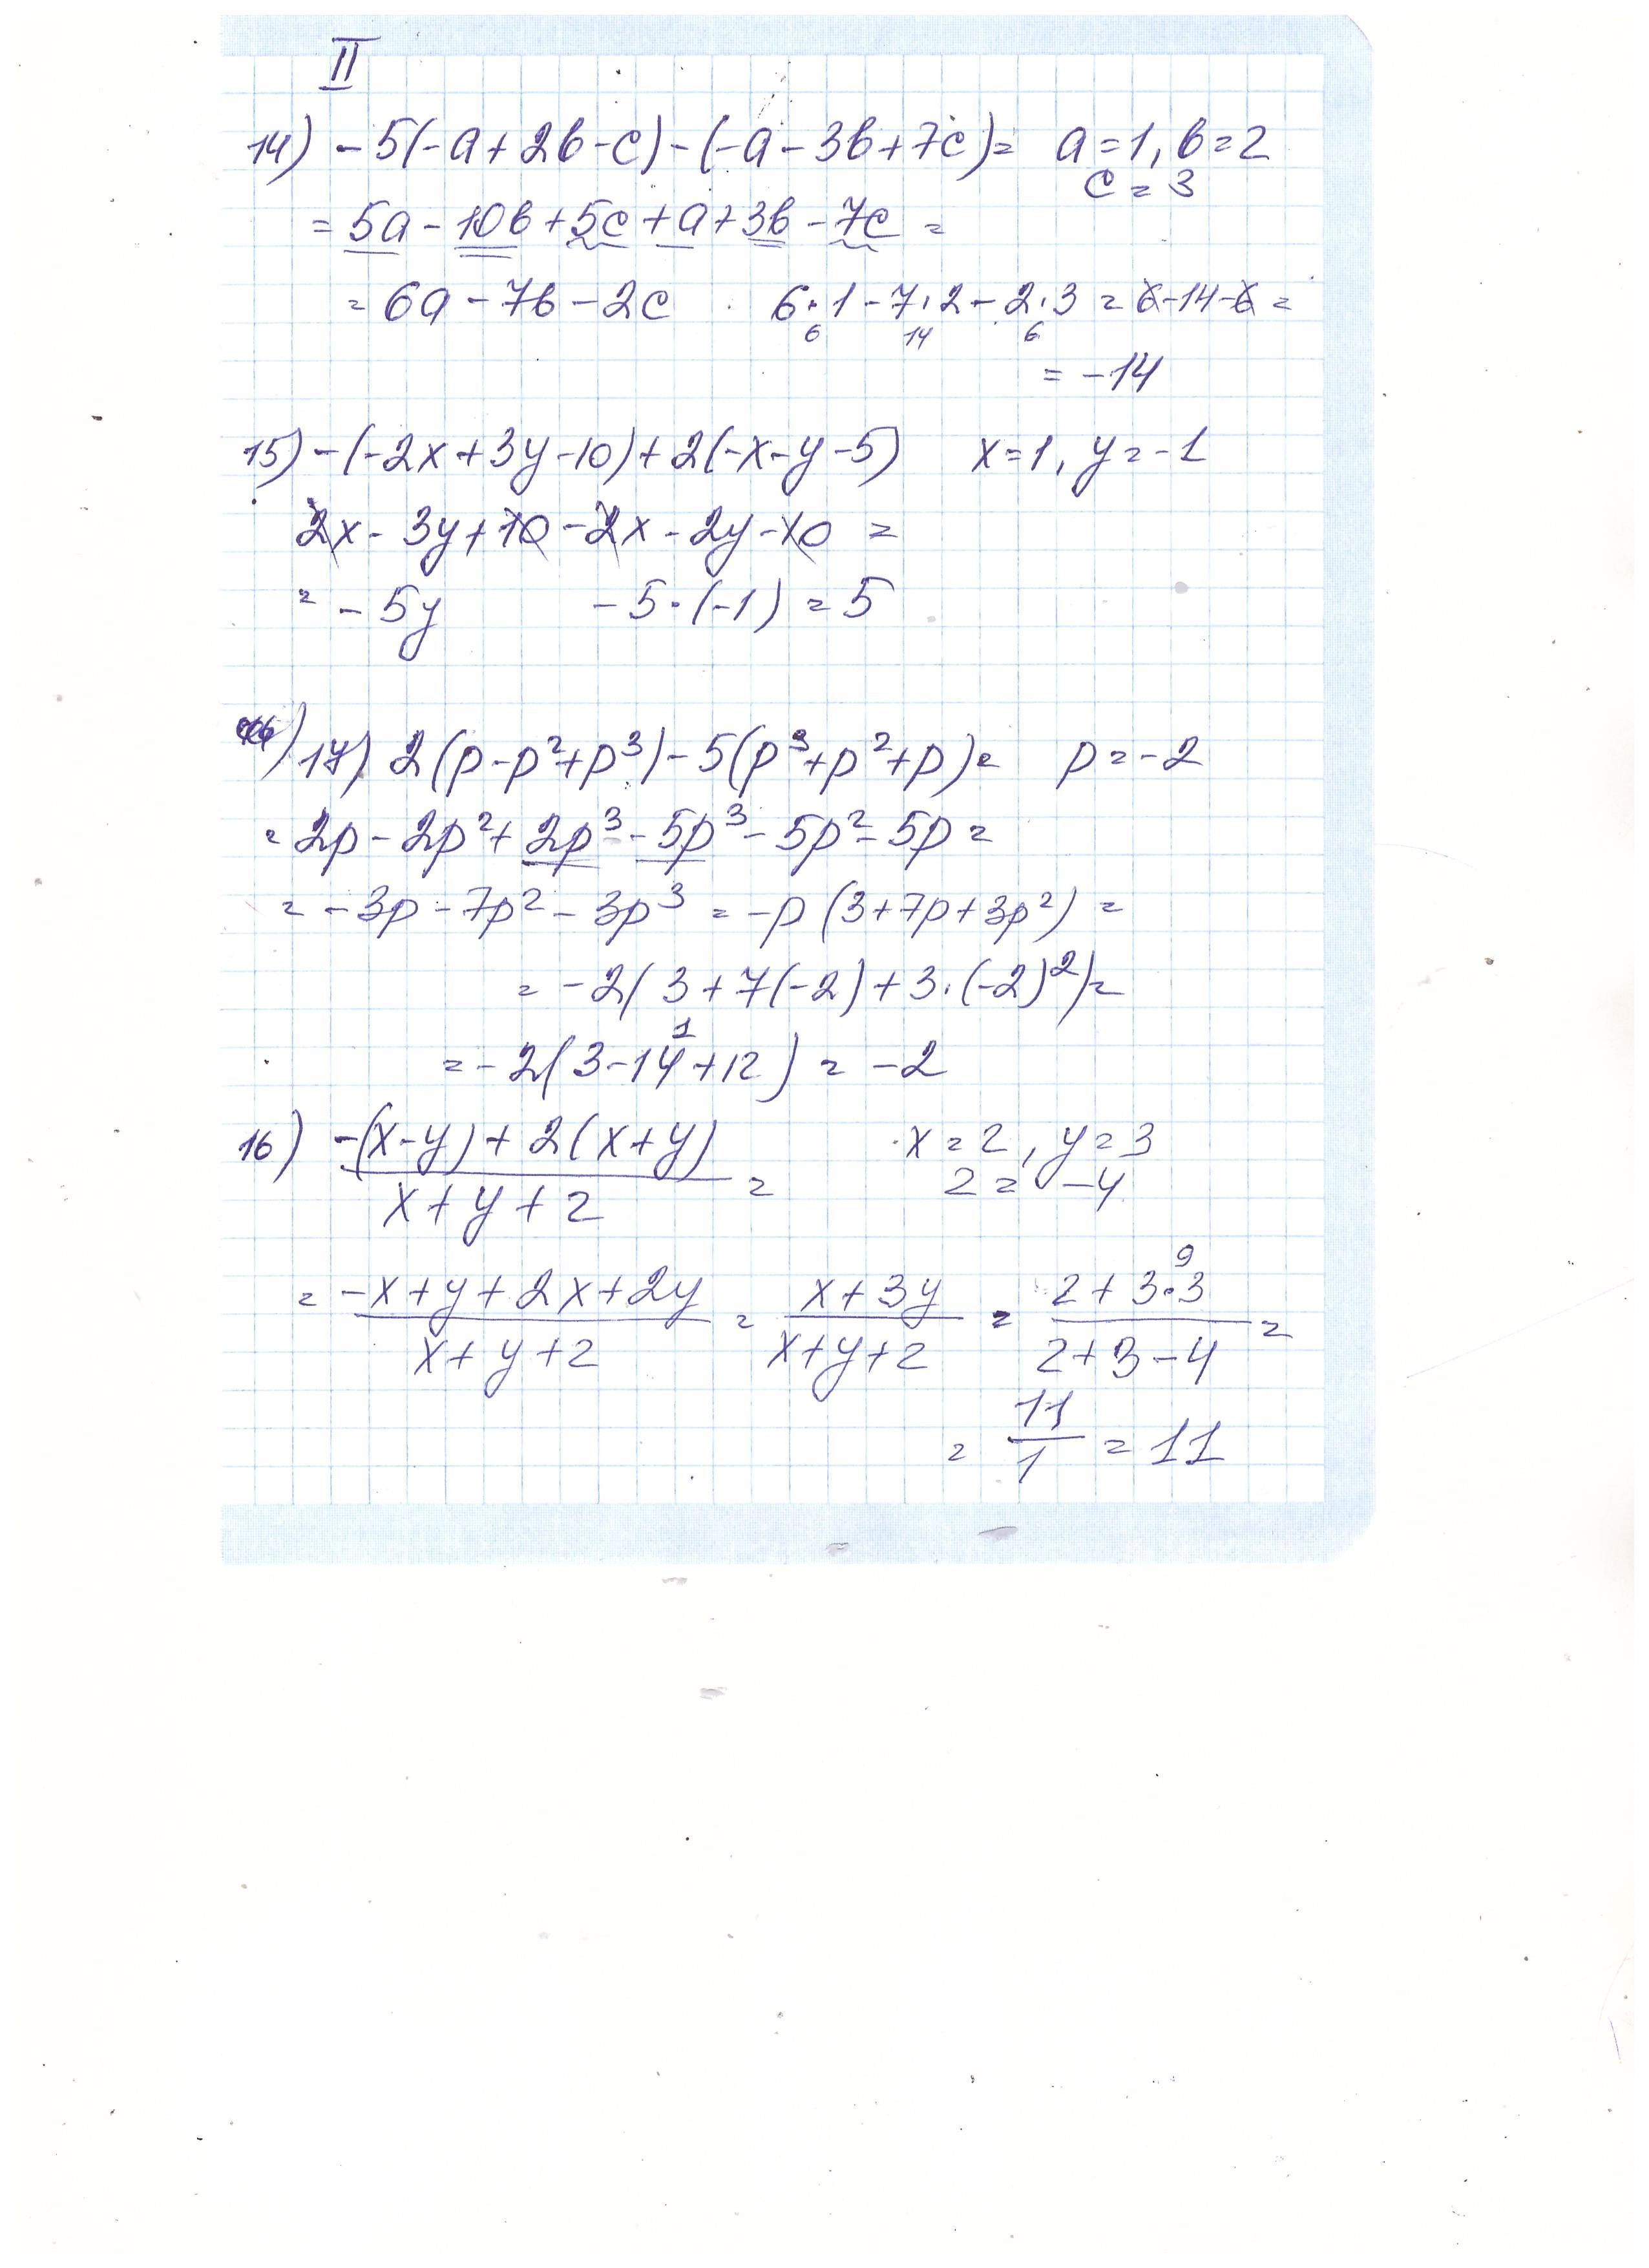 II
14) -5(-a+2b-c)-(-a-3b+7c)= a=1, b=2
c=3
=5a-10b+5c+a+3b-7c=
=6a-7b-2c 6·1-7·2-2·3=6-14-6=
6 14 6
=-14
15) -(-2x+3y-10)+2(-x-y-5) x=1, y=-1
2x-3y+10-2x-2y-10=
=-5y -5·(-1)=5
17) 2(p-p²+p³)-5(p³+p²+p)= p=-2
=2p-2p²+2p³-5p³-5p²-5p=
=-3p-7p²-3p³=-p(3+7p+3p²)=
=-2(3+7(-2)+3·(-2)²)=
1
=-2(3-14+12)=-2
16) -(x-y)+2(x+y) x=2, y=3
x+y+z = z=-4
9
=-x+y+2x+2y = x+3y = 2+3·3 =
x+y+z x+y+z 2+3-4
11
= 1 = 11